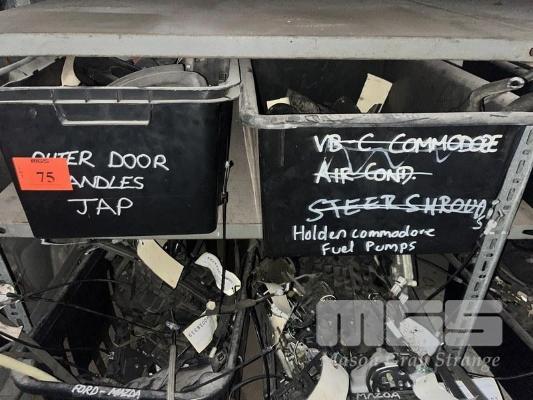 OUTER DOOR
HANDLES
JAP
MGS
75
VB-C COMMODORE
AIR COND.
STEER SHROUD
Holden commodore
Fuel Pumps
FORD-MAZDA
MAZDA
MGS
Mason Gray Strange